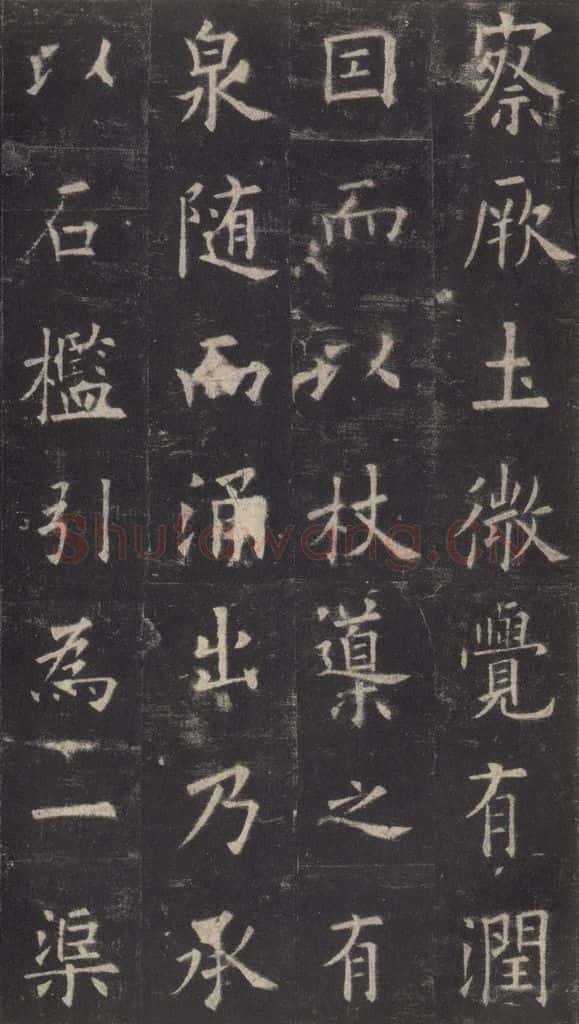 察厥土微覺有潤
因而以杖導之有
泉随而涌出乃承
以石檻引為一渠
Shufawang.cn